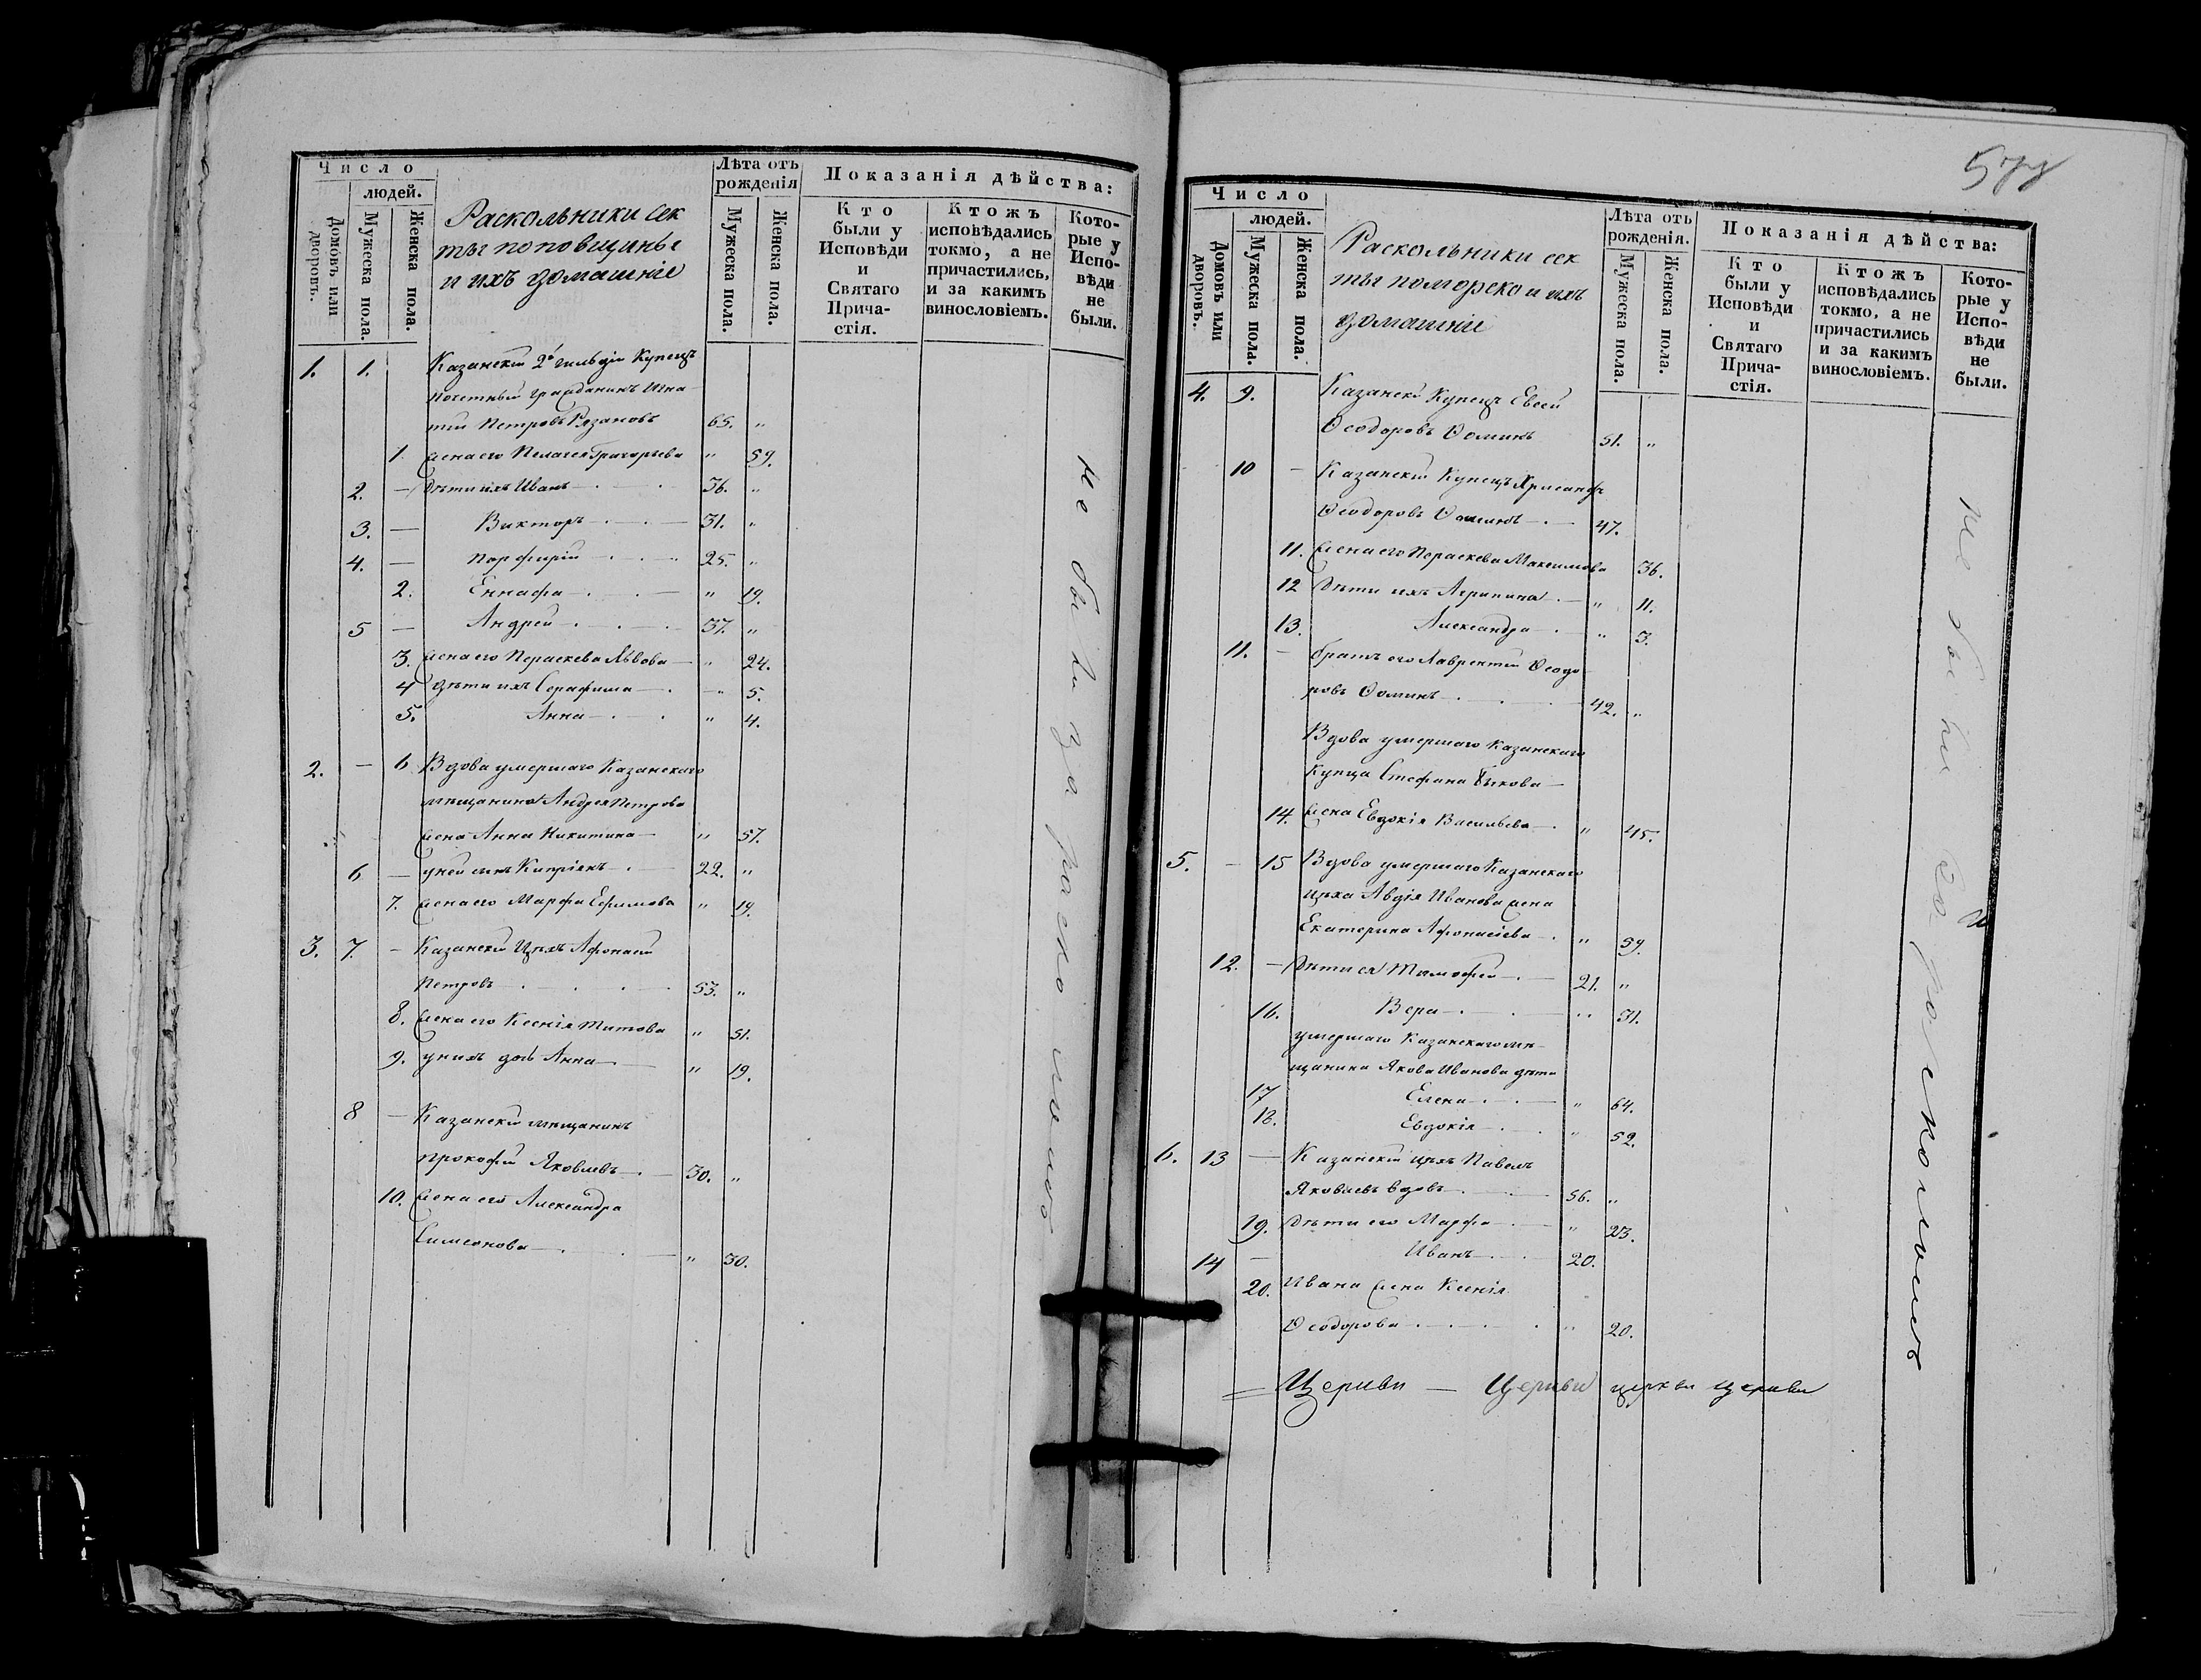 Число
людей.
Домовъ или дворовъ.
Мужеска пола.
Женска пола.
Раскольники сек
ты поповщины
и ихъ домашніе
Лѣта отъ рожденія
Мужеска пола.
Женска пола.
Показанія дѣйства:
Кто были у Исповѣди и Святаго Прича-стія.
Ктожъ исповѣдались токмо, а не причастились, и за какимъ винословіемъ.
Кото-рые у Испо-вѣди не были.
1. 1. Казанскій 2й гильдіи Купецъ
почетный гражданинъ Игна-
тій Петровъ Рязановъ 65. „
1. жена его Пелагея Григорьева „ 59.
2. — Дѣти ихъ Иванъ 36. „
3. — Викторъ 31. „
4. — Порфирій 25. „
2. Еннафа „ 19.
5 — Андрей 37. „
3. жена его Параскева Львова „ 24.
4 дѣти ихъ Серафима „ 5.
5. Анна „ 4.
2. — 6 Вдова умершаго Казанскаго
мѣщанина Андрея Петрова
жена Анна Никитина „ 57.
6 — у ней сынъ Кипріянъ 22. „
7. жена его Марфа Ефимова „ 19.
3. 7. — Казанскій Цѣхъ Афонасій
Петровъ 53. „
8. жена его Ксенія Титова „ 51.
9. у нихъ дочь Анна „ 19.
8 — Казанскій мѣщанинъ
Прокофій Яковлевъ 30. „
10. жена его Александра
Симеонова „ 30.
не были за расколомъ
577
Число
людей.
Домовъ или дворовъ.
Мужеска пола.
Женска пола.
Раскольники сек
ты поморско и ихъ
домашніе
Лѣта отъ рожденія.
Мужеска пола.
Женска пола.
Показанія дѣйства:
Кто были у Исповѣди и Святаго Прича-стія.
Ктожъ исповѣдались токмо, а не причастились и за какимъ винословіемъ.
Кото-рые у Испо-вѣди не были.
4. 9. Казанскій Купецъ Евсей
Ѳеодоровъ Ѳоминъ 51. „
10 — Казанскій Купецъ Хрисанфъ
Ѳеодоровъ Ѳоминъ 47.
11. жена его Параскева Максимова 36.
12 Дѣти ихъ Агрипина „ 11.
13. Александра „ 3.
11. — братъ его Лаврентій Ѳеодо
ровъ Ѳоминъ 42. „
Вдова умершаго Казанскаго
Купца Стефана Быкова
14. жена Евдокія Васильева „ 45.
5. — 15 Вдова умершаго Казанскаго
цѣха Авдія Иванова жена
Екатерина Афонасіева „ 59.
12. — Дѣти ея Тимофей 21. „
16. Вера „ 31.
умершаго Казанскаго мѣ-
щанина Якова Иванова дѣти
17 Елена „ 64.
18. Евдокія „ 52.
6. 13 — Казанскій цѣхъ Павелъ
Яковлевъ вдовъ 56. „
19. Дѣти его Марфа „ 23.
14 — Иванъ 20.
20. Ивана жена Ксенія
Ѳеодорова „ 20.
не были за расколомъ
= Церкви — Церкви церкви церкви